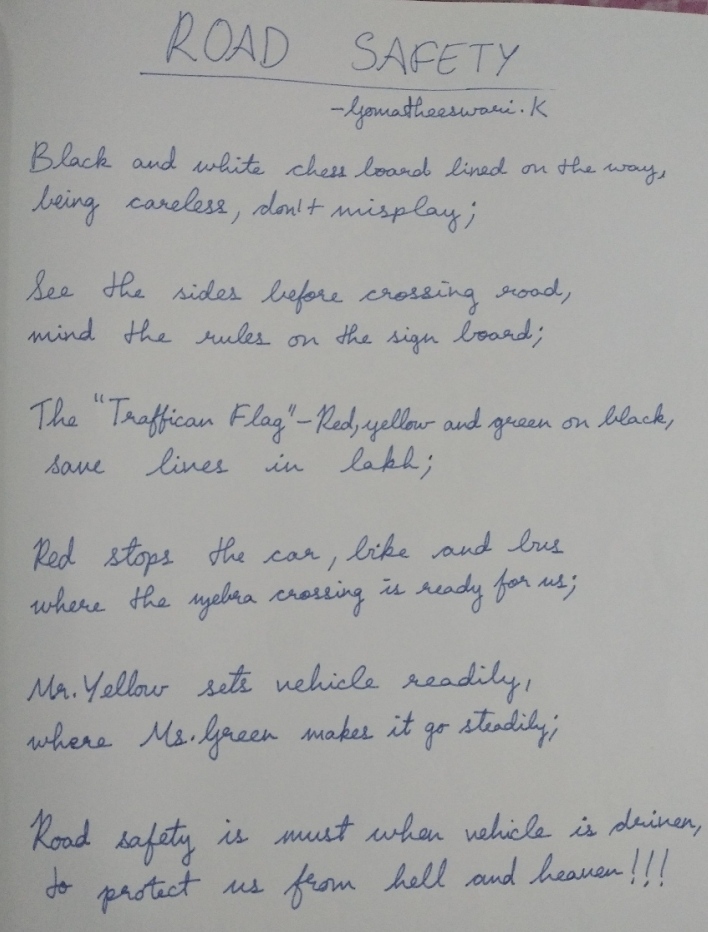 ROAD SAFETY
-Gomatheeswari.K
Black and white chess board lined on the way,
being careless, don't misplay;
See the sides before crossing road,
mind the rules on the sign board;
The "Traffican Flag"-Red, yellow and green on black,
save lives in lakh;
Red stops the car, bike and bus
where the zebra crossing is ready for us;
Mr. Yellow sets vehicle readily,
where Ms. Green makes it go steadily;
Road safety is must when vehicle is driven,
to protect us from hell and heaven!!!